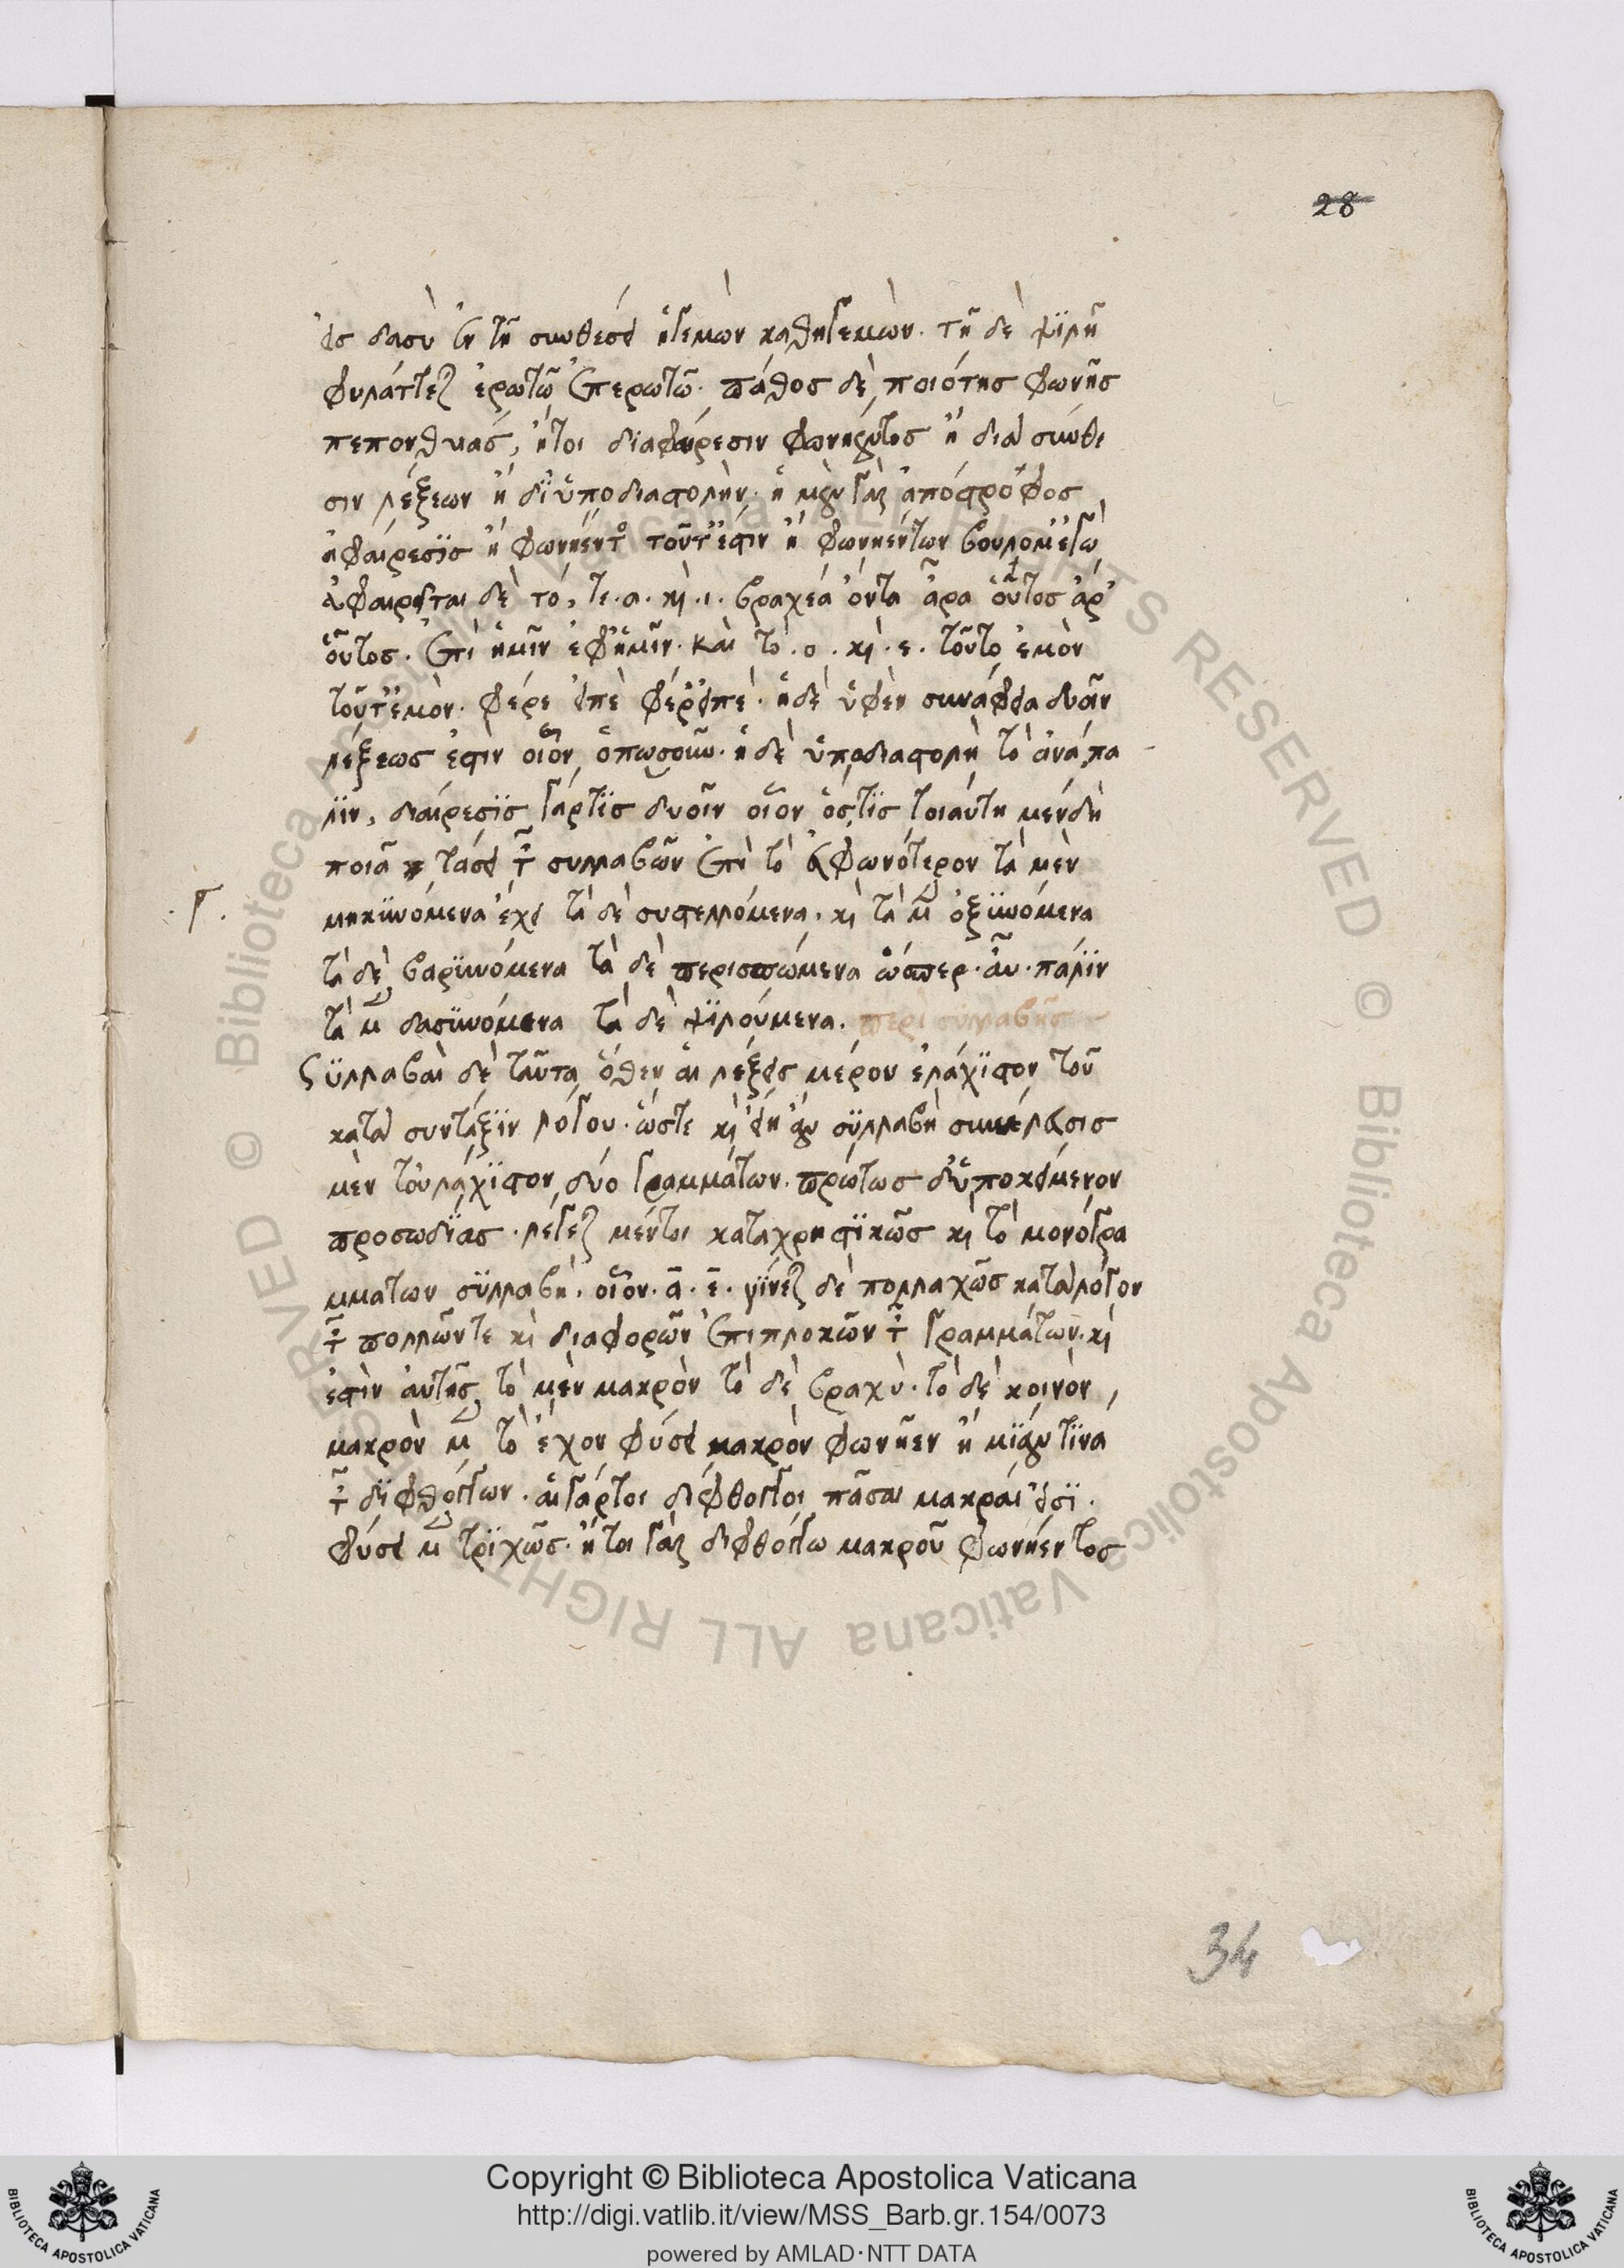 28
εἰς δασὺ ἐν τῆ συνθέσει ἡγεμὼν καθηγεμὼν. τῆ δὲ ψϊλῆ
φυλάττεται ἐρωτῶ ἐπερωτῶ. πάθος δὲ ποιότης φωνῆς
πεπονθυιας, ἤτοι διαφαίρεσιν φωνηεντος ἢ δια σύνθε
σιν λέξεων ἢ δϊ ὑποδιαστολὴν. ἡ μὲν γὰρ ἀπόστροφος
ἀφαίρεσϊς ἢ φωνήεντος τοῦτ' ἔστιν ἢ φωνηέντων
ἀφαιρεῖται δὲ τό, τε. α. καὶ. ι. βραχέα ὄντα ἆρα οὗτος ἀρ'
οὗτος. ἐπὶ ἡμῖν ἐφ' ἡμῖν. καὶ τὸ. ο. καὶ. ε. τοῦτο ἐμὸν
τοῦτ' ἐμὸν. φέρε εἰπὲ φέρ' εἰπέ. ἡ δὲ ὑφὲν συνάφεια δυοῖν
λέξεως ἐστὶν οἷον ὁπωσοῦν. ἡ δὲ ὑποδιαστολὴ τὸ ἀνάπα
λϊν, διαίρεσϊς γάρ τϊς δυοῖν οἷον ὅς,τϊς τοιαύτη μὲν δὴ
ποιᾶ τάσει τῶν συλλαβῶν ἐπὶ τὸ εὐφωνότερον τὰ μὲν
.Γ.
μηκϋνόμενα ἔχει τὰ δὲ συστελλόμενα. καὶ τὰ μὲν ὀξϋνόμενα
τὰ δὲ βαρϋνόμενα τὰ δὲ περισπώμενα ὥσπερ. αὖ. πάλϊν
τὰ μὲν δασϋνόμενα τὰ δὲ ψϊλούμενα. περὶ συλλαβῆς
Σϋλλαβαὶ δὲ ταῦτα ὅθεν αἱ λέξεις μέρον ἐλάχϊστον τοῦ
κατα συντάξϊν λόγου. ὥστε καὶ εἴη ἂν σϋλλαβὴ συνέλευσις
μὲν τοὐλάχϊστον δύο γραμμάτων. πρώτως δ' ὑποκείμενον
προσωδϊας. λέγεται μέντοι καταχρηστϊκῶς καὶ τὸ μονόγρα
μματων σϋλλαβὴ. οἷον. α. ε. γϊνεται δὲ πολλαχῶς κατα λόγον
τῶν πολλῶν τε καὶ διαφορῶν ἐπιπλοκῶν τῶν γραμμάτων. καὶ
ἐστὶν αὐτῆς τὸ μὲν μακρὸν τὸ δὲ βραχὺ. τὸ δὲ κοινὸν,
μακρὸν μὲν τὸ ἔχον φύσει μακρὸν φωνῆεν ἢ μϊαν τϊνα
τῶν δϊφθόγγων. αἱ γάρ τοι δίφθογγοι πᾶσαι μακραί εἰσϊ.
φύσει μὲν τρϊχῶς. ἤτοι γὰρ διφθόγγω μακροῦ φωνήεντος
34
Copyright © Biblioteca Apostolica Vaticana
http://digi.vatlib.it/view/MSS_Barb.gr.154/0073
powered by AMLAD·NTT DATA